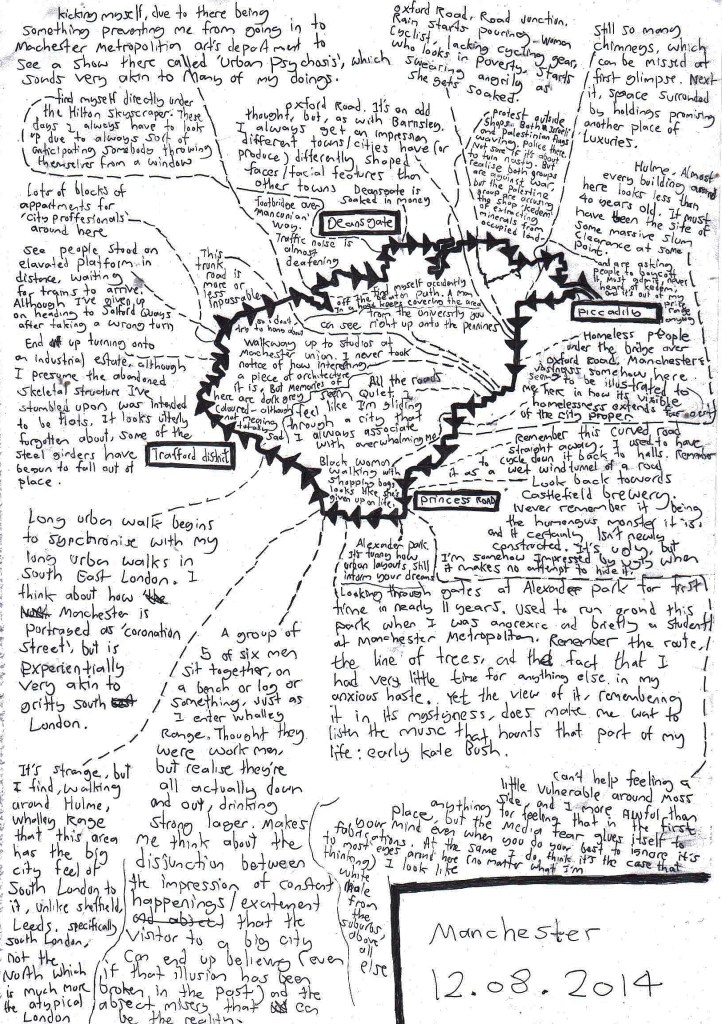 kicking myself, due to there being
something preventing me from going in to
Machester Metropolitan art's department to
see a show there called 'Urban Psychosis', which
sounds very akin to many of my doings.
find myself directly under
the Hilton Skyscraper. These
days I always have to look
up due to always sort of
anticipating somebody throwing
themselves from a window
Lots of blocks of
appartments for
'city proffesionals'
around here
see people stood on
elavated platform in
distance, waiting
for trains to arrive.
Although I've given up
on heading to Salford Quays
after taking a wrong turn
End up turning onto
an industrial estate, although
I presume the abandoned
skeletal structure I've
stumbled upon was intended
to be flats. It looks utterly
forgotten about, some of the
steel girders have
begun to fall out of
place.
Trafford district
oxford Road. It's an odd
thought, but, as with Barnsley.
I always get an impression
different towns/cities have (or
produce) differently shaped
faces/facial features than
other towns
Deansgate is
soaked in money
Footbridge over
'mancunian'
way.
Traffic noise is
almost
deafening
Deansgate
This
trunk
road is
more or
less
impassable
oxford Road, Road Junction.
Rain starts pouring. Woman
Cyclist, lacking cycling gear,
who looks in poverty, starts
swearing angrily as
she gets soaked.
protest outside
shops. Both Israeli
and Palestinian flags
waving, police there.
Not sure if it's about
to turn nasty. But
realise both groups
are against war,
but the palestine
group are accusing
the shop 'Kedem'
of extracting
minerals from
occupied land
and are asking
people to boycott
it. must admit, never
heard of Kedem,
and it's out of my
price
range
anyway
still so many
chimneys, which
can be missed at
first glimpse. Next
it, space surrounded
by holdings promising
another place of
Luxuries.
Hulme. Almost
every building around
here looks less than
40 years old. It must
have been the site of
some massive slum
clearance at some
point.
piccadilly
find myself accidently
off the beaten path. A man
in a huge
covering the area
from the university you
can see right up onto the pennines
Walkway up to studios at
Manchester union. I never took
notice of how interesting
a piece of architecture
it is. But memories of
here are dark grey
coloured - although
not
sad
All the roads
seem Quiet,
feel like I'm gliding
through a city that
I always associate
with overwhelming me
Black woman
walking with
shopping bag,
looks like she's
given up on life.
Homeless people
under the bridge over
oxford Road. Manchester's
vastness somehow here
seems to be illustrated to
me here in how its visible
homelessness extends far out
of the city proper
Remember this curved road
straight away. I used to have
to cycle down it back to halls. Remember
it as a wet wind tunnel of a road
princess ROAD
Look back towards
Castlefield brewery.
Never remember it being
the humongous monster it is,
and it certainly isn't newly
constructed. It's ugly, but
I'm somehow impressed by ugly when
it makes no attempt to hide it.
Alexander park
It's funny how
urban layouts still
inform your dreams
Looking through gates at Alexander park for first
time in nearly 11 years. Used to run around this
park when I was anorexic and briefly a student
at Manchester Metropolitan. Remember the route,
the line of trees, and the fact that I
had very little time for anything else in my
anxious haste. Yet the view of it, remembering
it in its mostyness, does make me want to
listen the music that haunts that part of my
life: early Kate Bush.
Long urban walk begins
to synchronise with my
long urban walks in
South East London. I
think about how
Manchester is
portrayed as 'coronation
street', but is
Experientially
very akin to
gritty south
London.
It's strange, but
I find, walking
around Hulme,
whalley Range
that this area
has the big
city feel of
South London to
it, unlike sheffield,
Leeds. specifically
south London,
not the
North which
is much more
the atypical
London
A group of
5 of six men
sit together, on
a bench or log or
something, just as
I enter whalley
Range. Thought they
were work men,
but realise they're
all actually down
and out, drinking
strong lager. Makes
me think about the
disjunction between
the impression of constant
happenings/excitement
that the
visitor to a big city
can end up believing (even
if that illusion has been
broken in the past) and the
abject misery that can
be the reality.
can't help feeling a
little vulnerable around Moss
side, and I more AWful than
anything for feeling that in the first
place, but the media fear glues itself to
your mind even when you do your best to ignore it's
fabrications. At the same I do think it's the case that
to most eyes around here (no matter what I'm
thinking) I look like
white
male
from
the
suburbs,
above
all
else
Manchester
12.08.2014